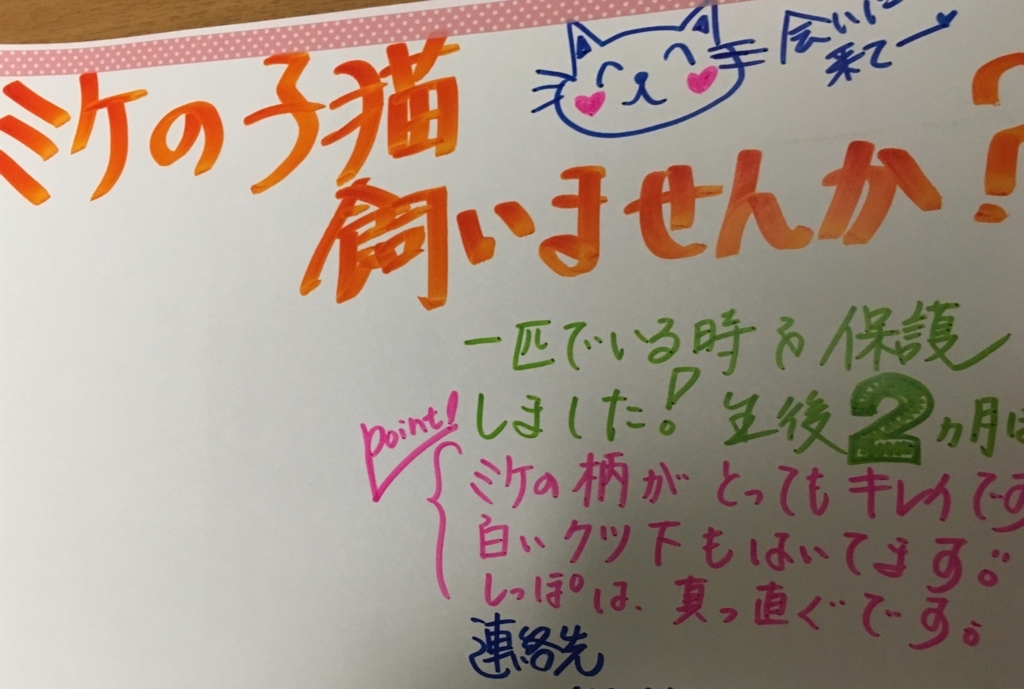 ミケの子猫
会いに
来て
飼いませんか？
一匹でいる時を保護
しました！生後2ヵ月は
point!
ミケの柄がとってもキレイです
白いクツ下もはいてます。
しっぽは、真っ直ぐです。
連絡先